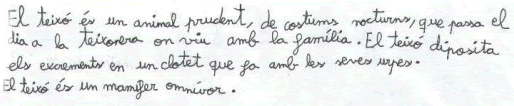 El teixó és un animal prudent, de costums nocturns, que passa el
dia a la teixonera on viu amb la família. El teixó diposita
els excrements en un clotet que fa amb les seves urpes.
El teixó és un mamífer omnívor.